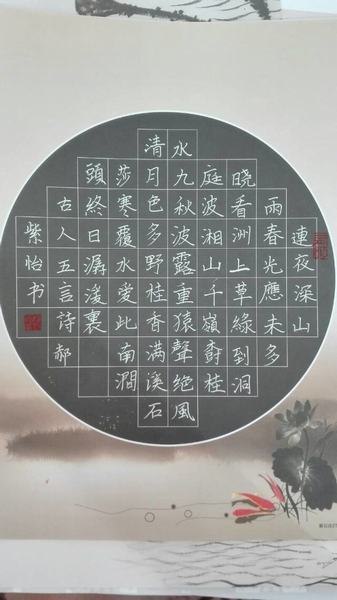 連夜深山
雨春光應未多
曉看洲上草綠到洞
庭波湘山千嶺樹桂
水九秋波露重猿聲絕風
清月色多野桂香满溪石
莎寒覆水愛此南澗
頭終日潺湲裏
古人五言詩郝
紫怡书